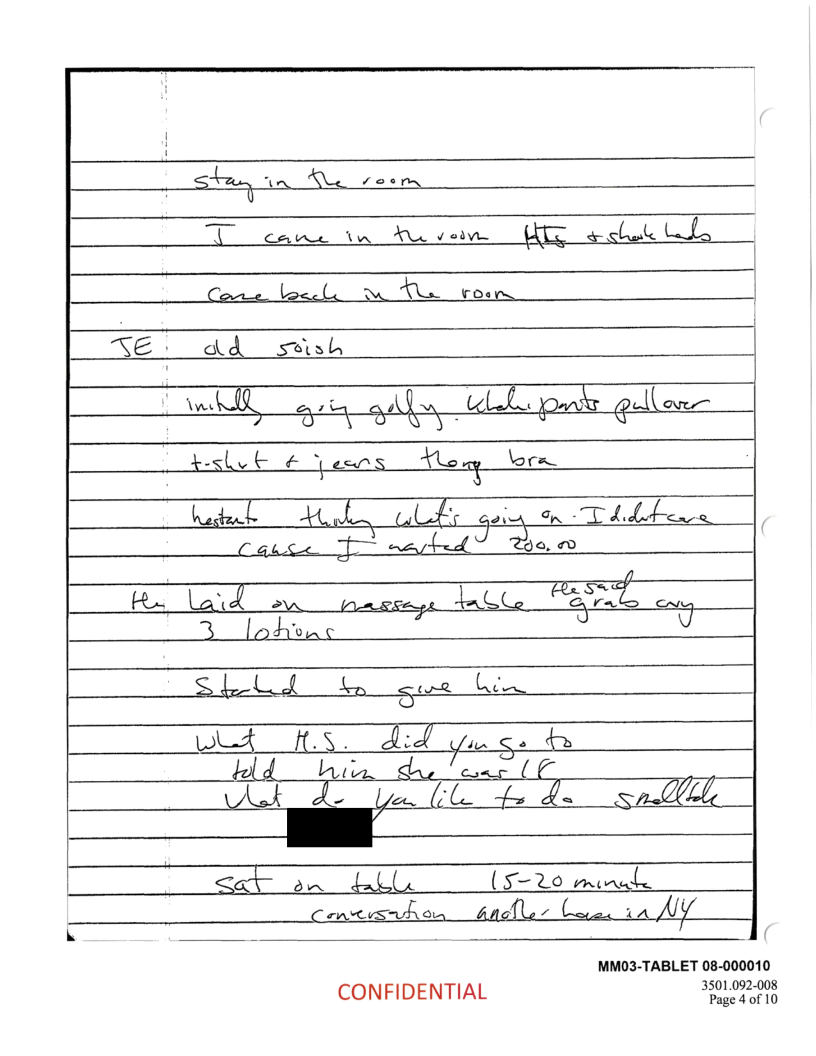 stay in the room
I came in the room + shook hands
Come back in the room
JE old 50ish
initially going golfy. khaki pants pullover
t-shirt + jeans thong bra
hesitant thinking what's going on. I didn't care
cause I wanted 200.00
He laid on massage table He said grab any
3 lotions
Started to give him
What H.S. did you go to
told him she was 18
What do you like to do smalltalk
sat on table 15-20 minute
conversation another house in NY
MM03-TABLET 08-000010
CONFIDENTIAL
3501.092-008
Page 4 of 10